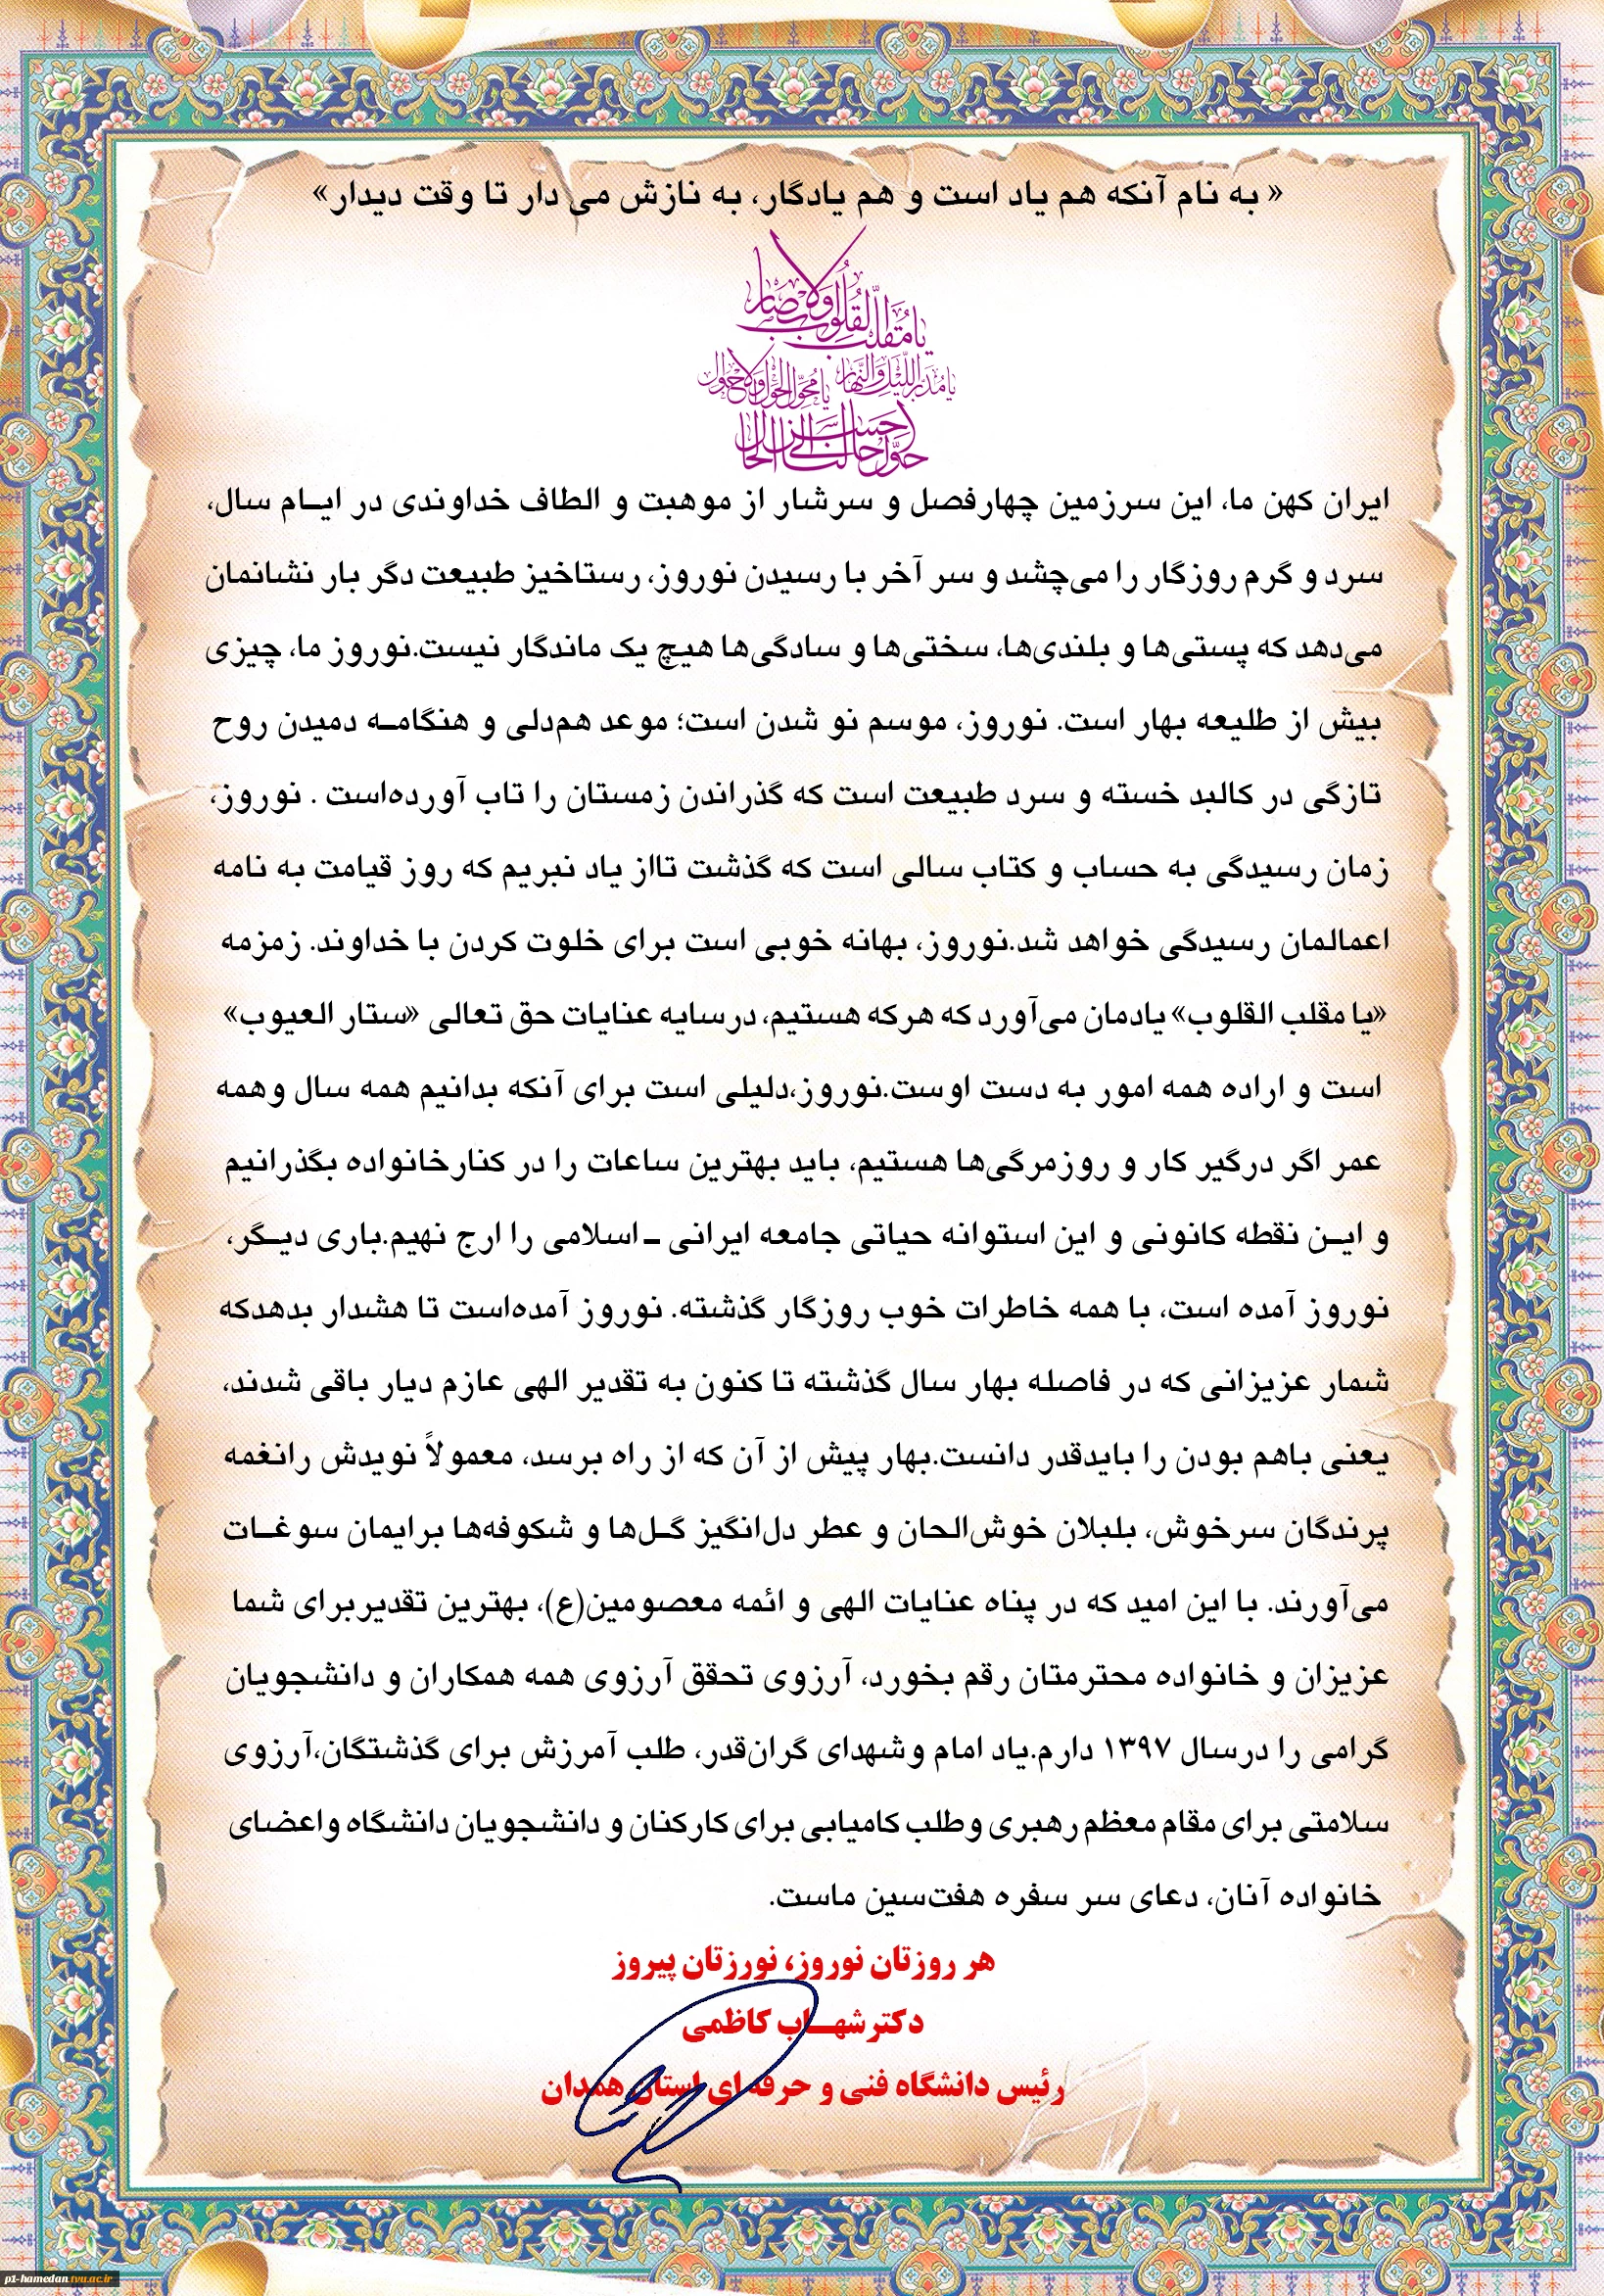 « به نام آنکه هم یاد است و هم یادگار، به نازش می دار تا وقت دیدار»
یا مُقَلِّبَ القُلُوبِ وَالاَبصار
یا مُدَبِّرَ اللَّیلِ وَالنَّهار یا مُحَوِّلَ الحَولِ وَالاَحوال
حَوِّل حالَنا اِلی اَحسَنِ الحال
ایران کهن ما، این سرزمین چهارفصل و سرشار از موهبت و الطاف خداوندی در ایـام سال،
سرد و گرم روزگار را می‌چشد و سر آخر با رسیدن نوروز، رستاخیز طبیعت دگر بار نشانمان
می‌دهد که پستی‌ها و بلندی‌ها، سختی‌ها و سادگی‌ها هیچ یک ماندگار نیست.نوروز ما، چیزی
بیش از طلیعه بهار است. نوروز، موسم نو شدن است؛ موعد هم‌دلی و هنگامـه دمیدن روح
تازگی در کالبد خسته و سرد طبیعت است که گذراندن زمستان را تاب آورده‌است . نوروز،
زمان رسیدگی به حساب و کتاب سالی است که گذشت تااز یاد نبریم که روز قیامت به نامه
اعمالمان رسیدگی خواهد شد.نوروز، بهانه خوبی است برای خلوت کردن با خداوند. زمزمه
«یا مقلب القلوب» یادمان می‌آورد که هرکه هستیم، درسایه عنایات حق تعالی «ستار العیوب»
است و اراده همه امور به دست اوست.نوروز،دلیلی است برای آنکه بدانیم همه سال وهمه
عمر اگر درگیر کار و روزمرگی‌ها هستیم، باید بهترین ساعات را در کنارخانواده بگذرانیم
و ایـن نقطه کانونی و این استوانه حیاتی جامعه ایرانی ـ اسلامی را ارج نهیم.باری دیـگر،
نوروز آمده است، با همه خاطرات خوب روزگار گذشته. نوروز آمده‌است تا هشدار بدهدکه
شمار عزیزانی که در فاصله بهار سال گذشته تا کنون به تقدیر الهی عازم دیار باقی شدند،
یعنی باهم بودن را بایدقدر دانست.بهار پیش از آن که از راه برسد، معمولاً نویدش رانغمه
پرندگان سرخوش، بلبلان خوش‌الحان و عطر دل‌انگیز گـل‌ها و شکوفه‌ها برایمان سوغـات
می‌آورند. با این امید که در پناه عنایات الهی و ائمه معصومین(ع)، بهترین تقدیربرای شما
عزیزان و خانواده محترمتان رقم بخورد، آرزوی تحقق آرزوی همه همکاران و دانشجویان
گرامی را درسال ۱۳۹۷ دارم.یاد امام وشهدای گران‌قدر، طلب آمرزش برای گذشتگان،آرزوی
سلامتی برای مقام معظم رهبری وطلب کامیابی برای کارکنان و دانشجویان دانشگاه واعضای
خانواده آنان، دعای سر سفره هفت‌سین ماست.
هر روزتان نوروز، نورزتان پیروز
دکترشهـاب کاظمی
رئیس دانشگاه فنی و حرفه ای استان همدان
p1-hamedan.tvu.ac.ir